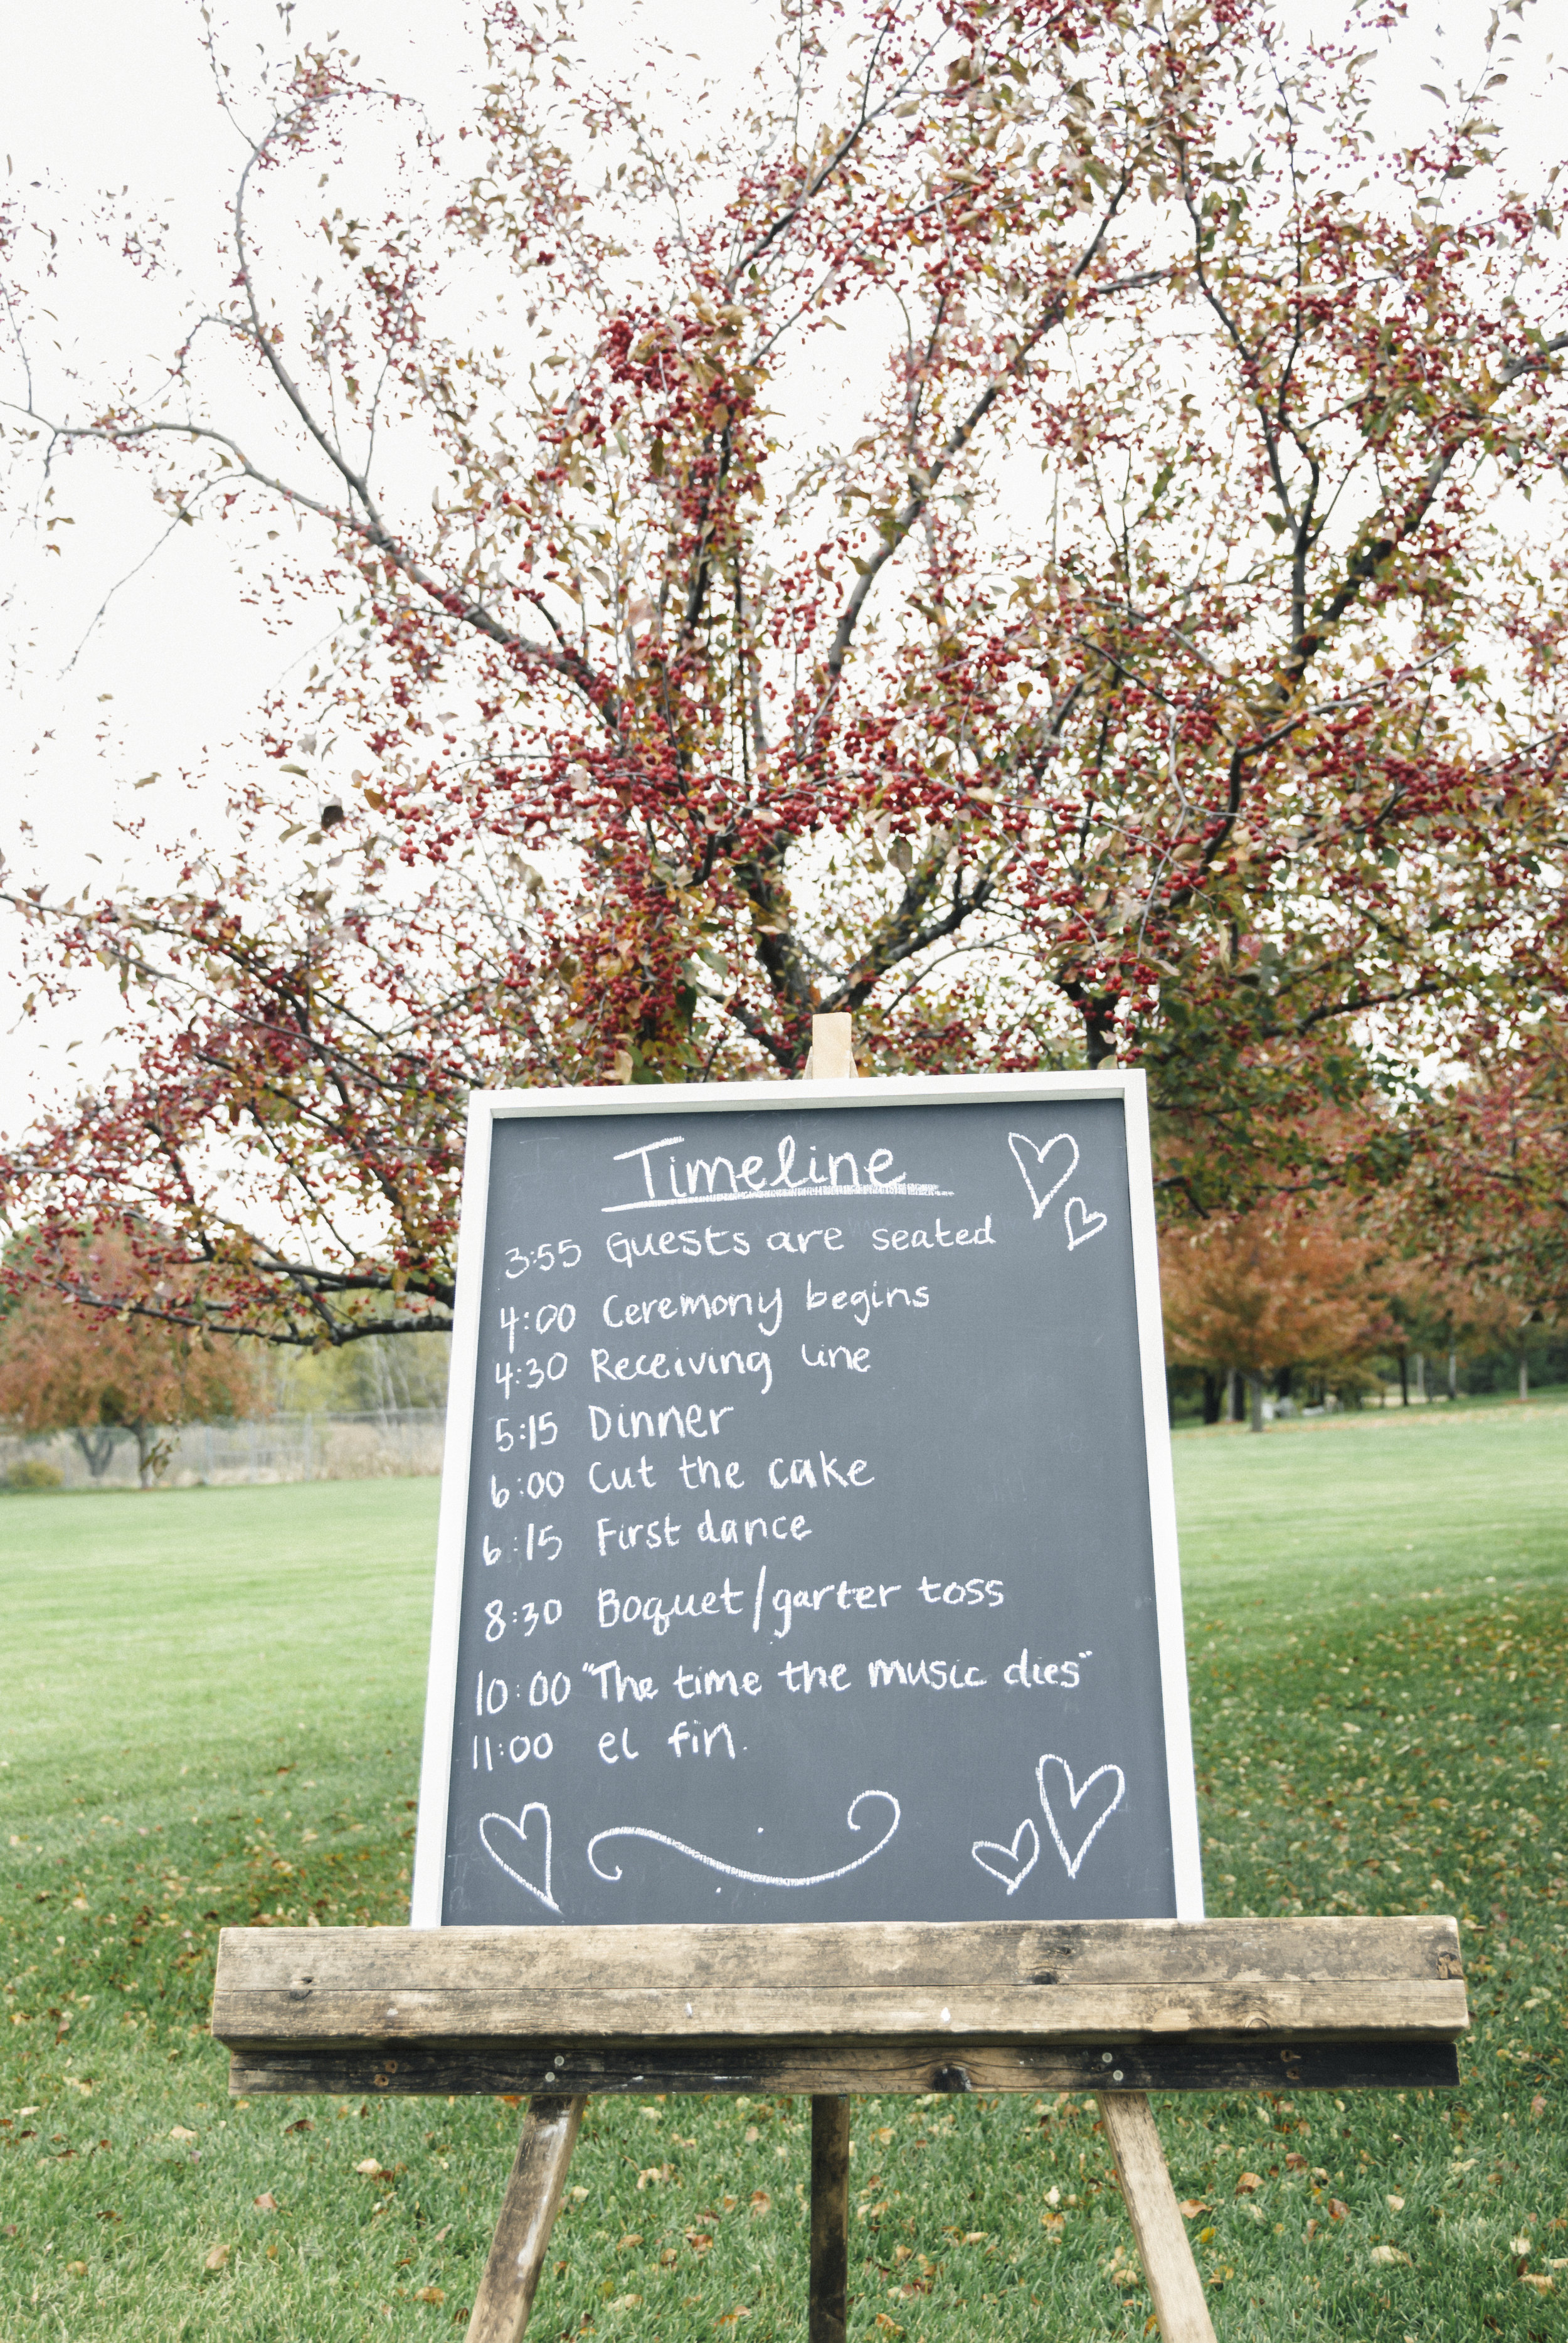 Timeline
3:55 Guests are seated
4:00 Ceremony begins
4:30 Receiving line
5:15 Dinner
6:00 Cut the cake
6:15 First dance
8:30 Boquet/garter toss
10:00 "The time the music dies"
11:00 el fin.